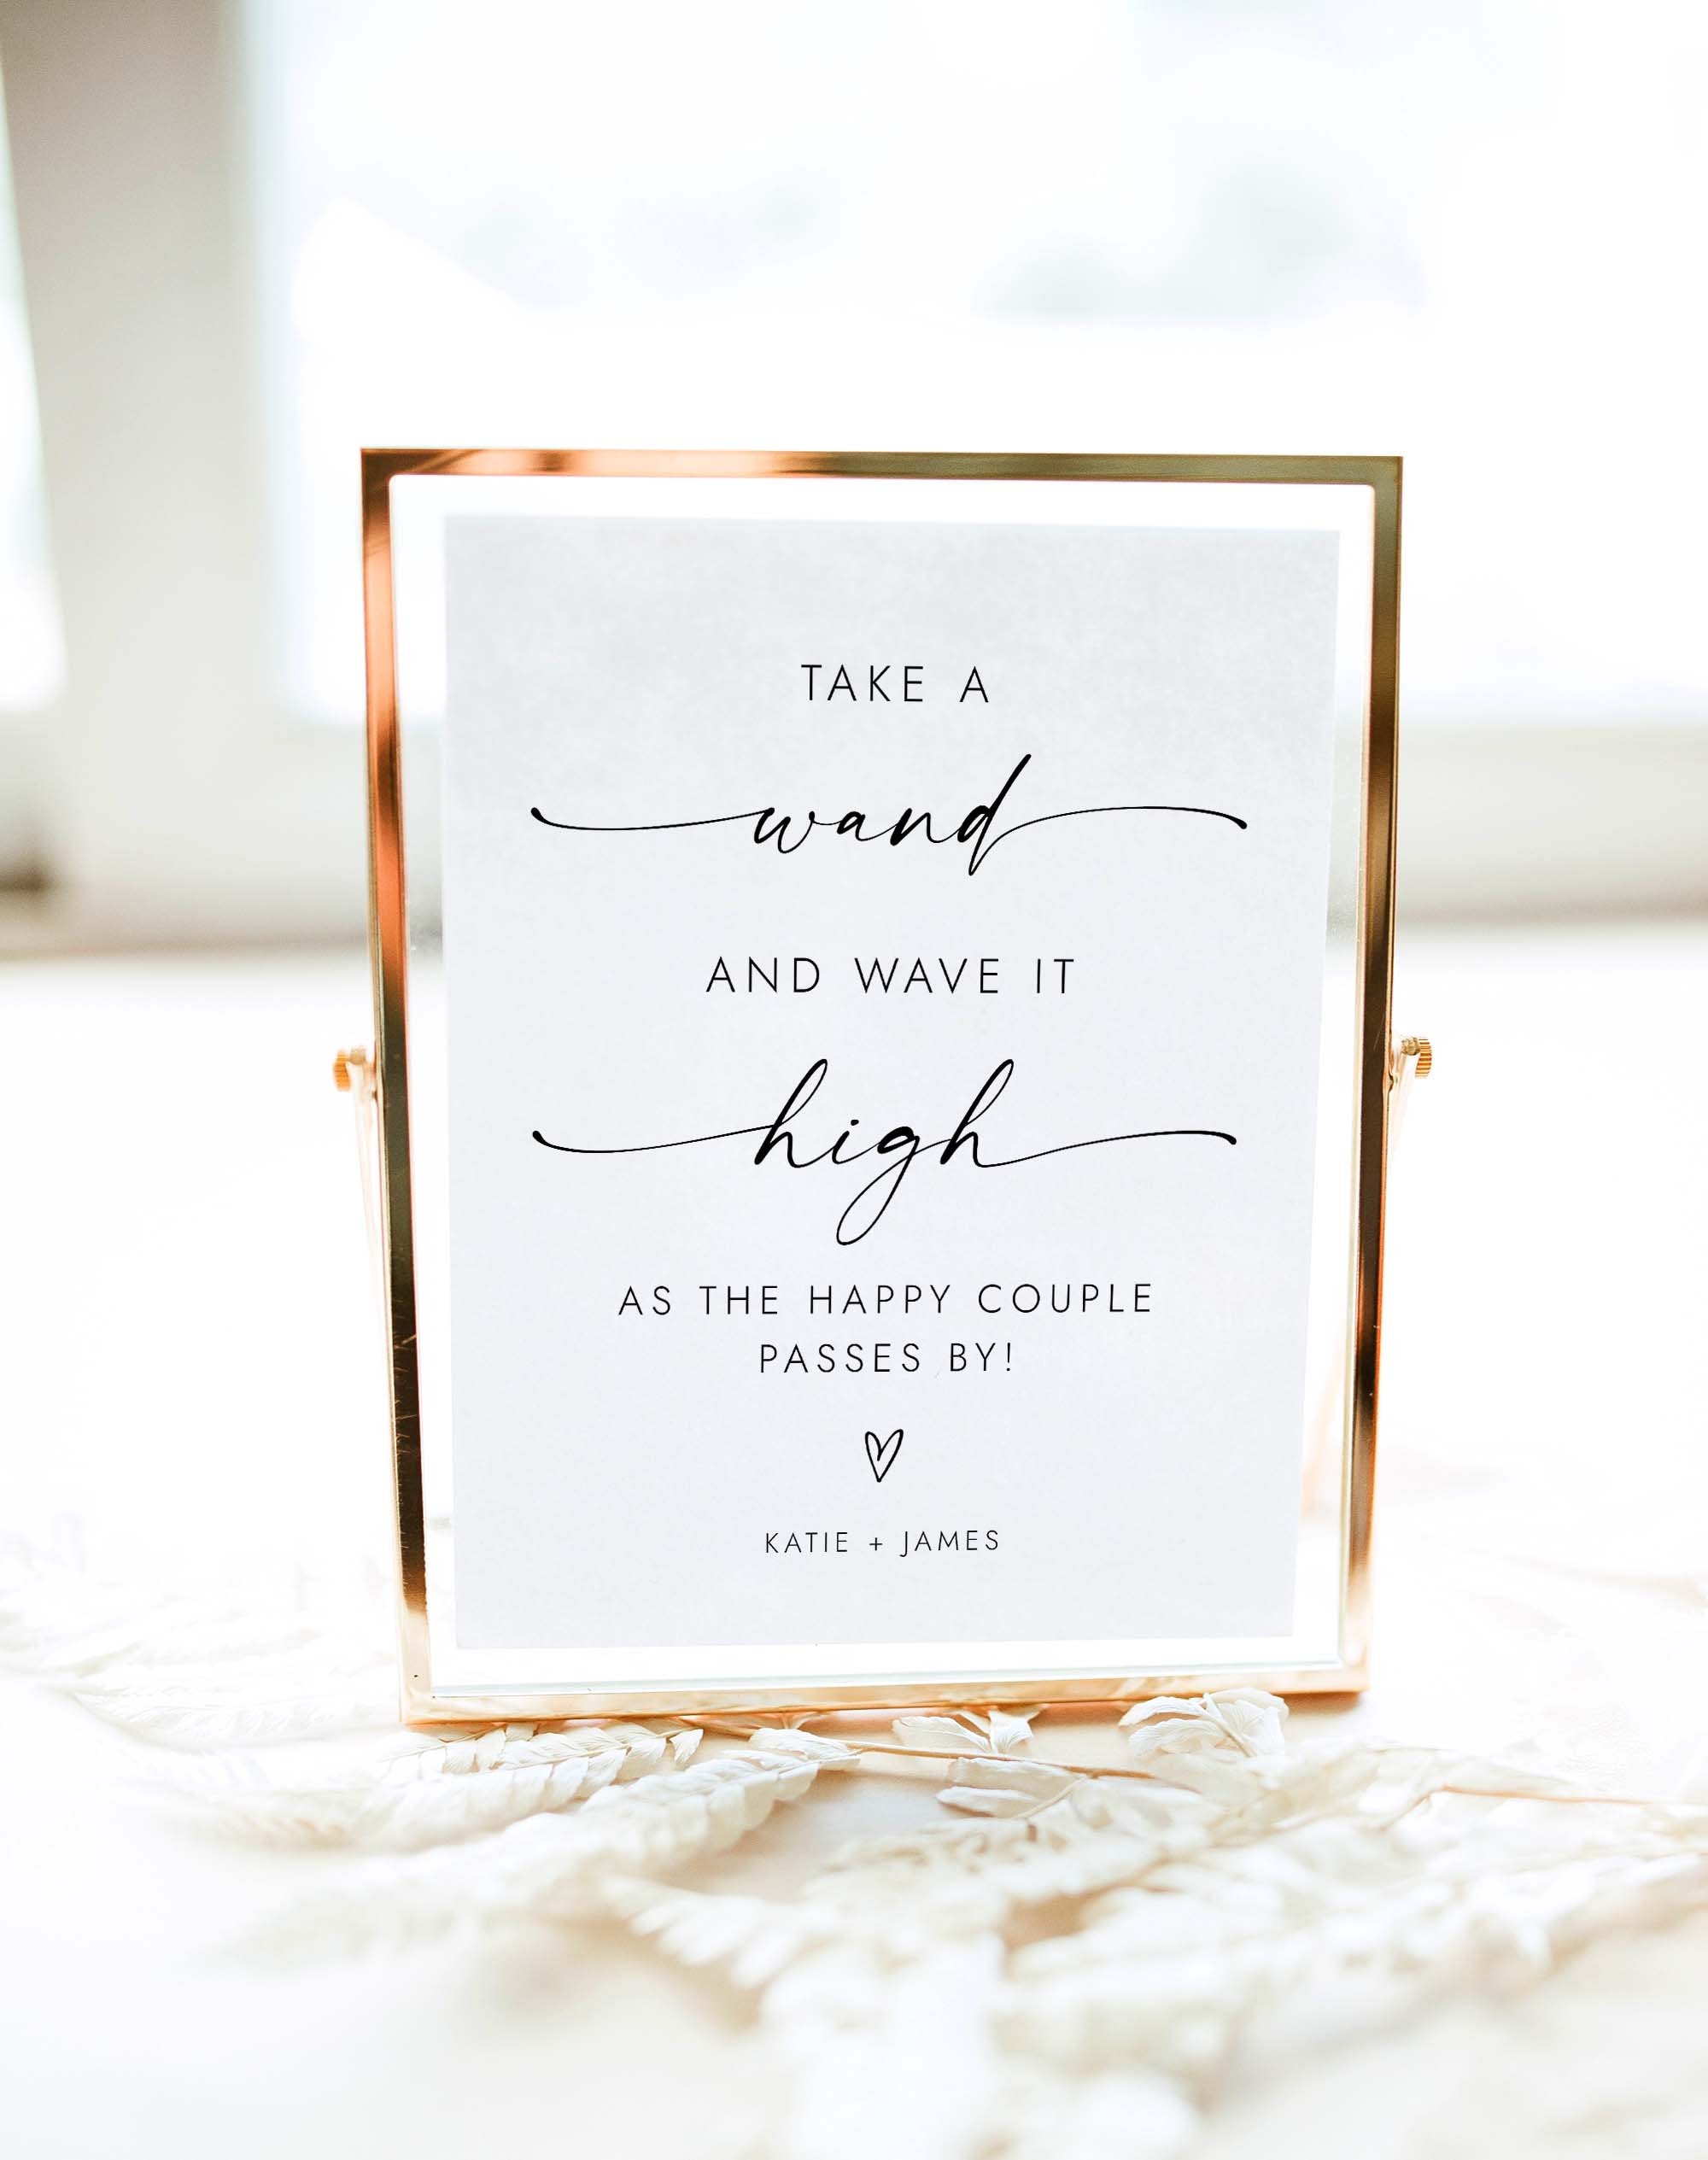 TAKE A
wand
AND WAVE IT
high
AS THE HAPPY COUPLE
PASSES BY!
KATIE + JAMES